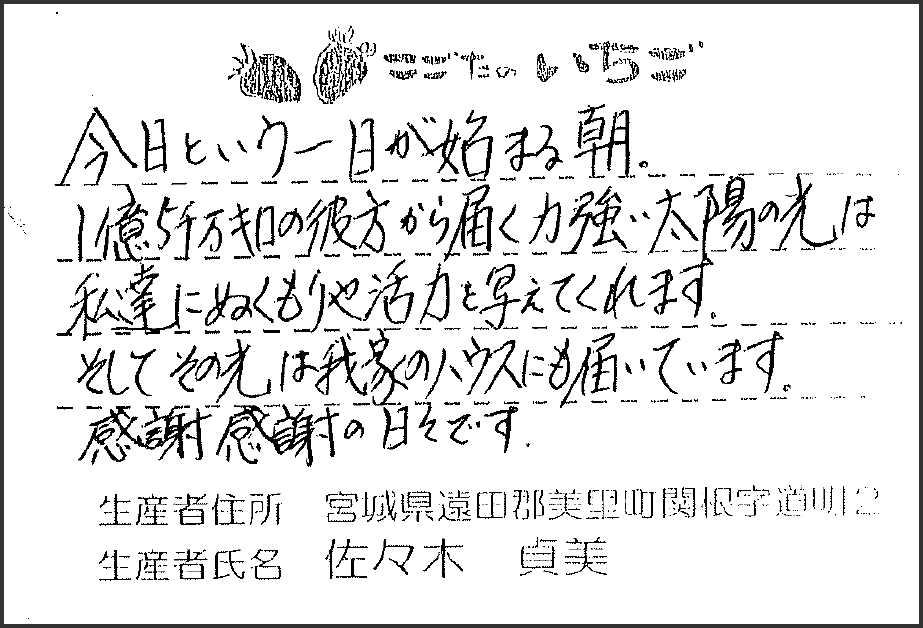 こごたのいちご
今日という一日が始まる朝。
1億5千万キロの彼方から届く力強い太陽の光は
私達にぬくもりや活力を与えてくれます。
そしてその光は我家のハウスにも届いています。
感謝感謝の日々です.
生産者住所 宮城県遠田郡美里町関根字道明2
生産者氏名 佐々木 貞美